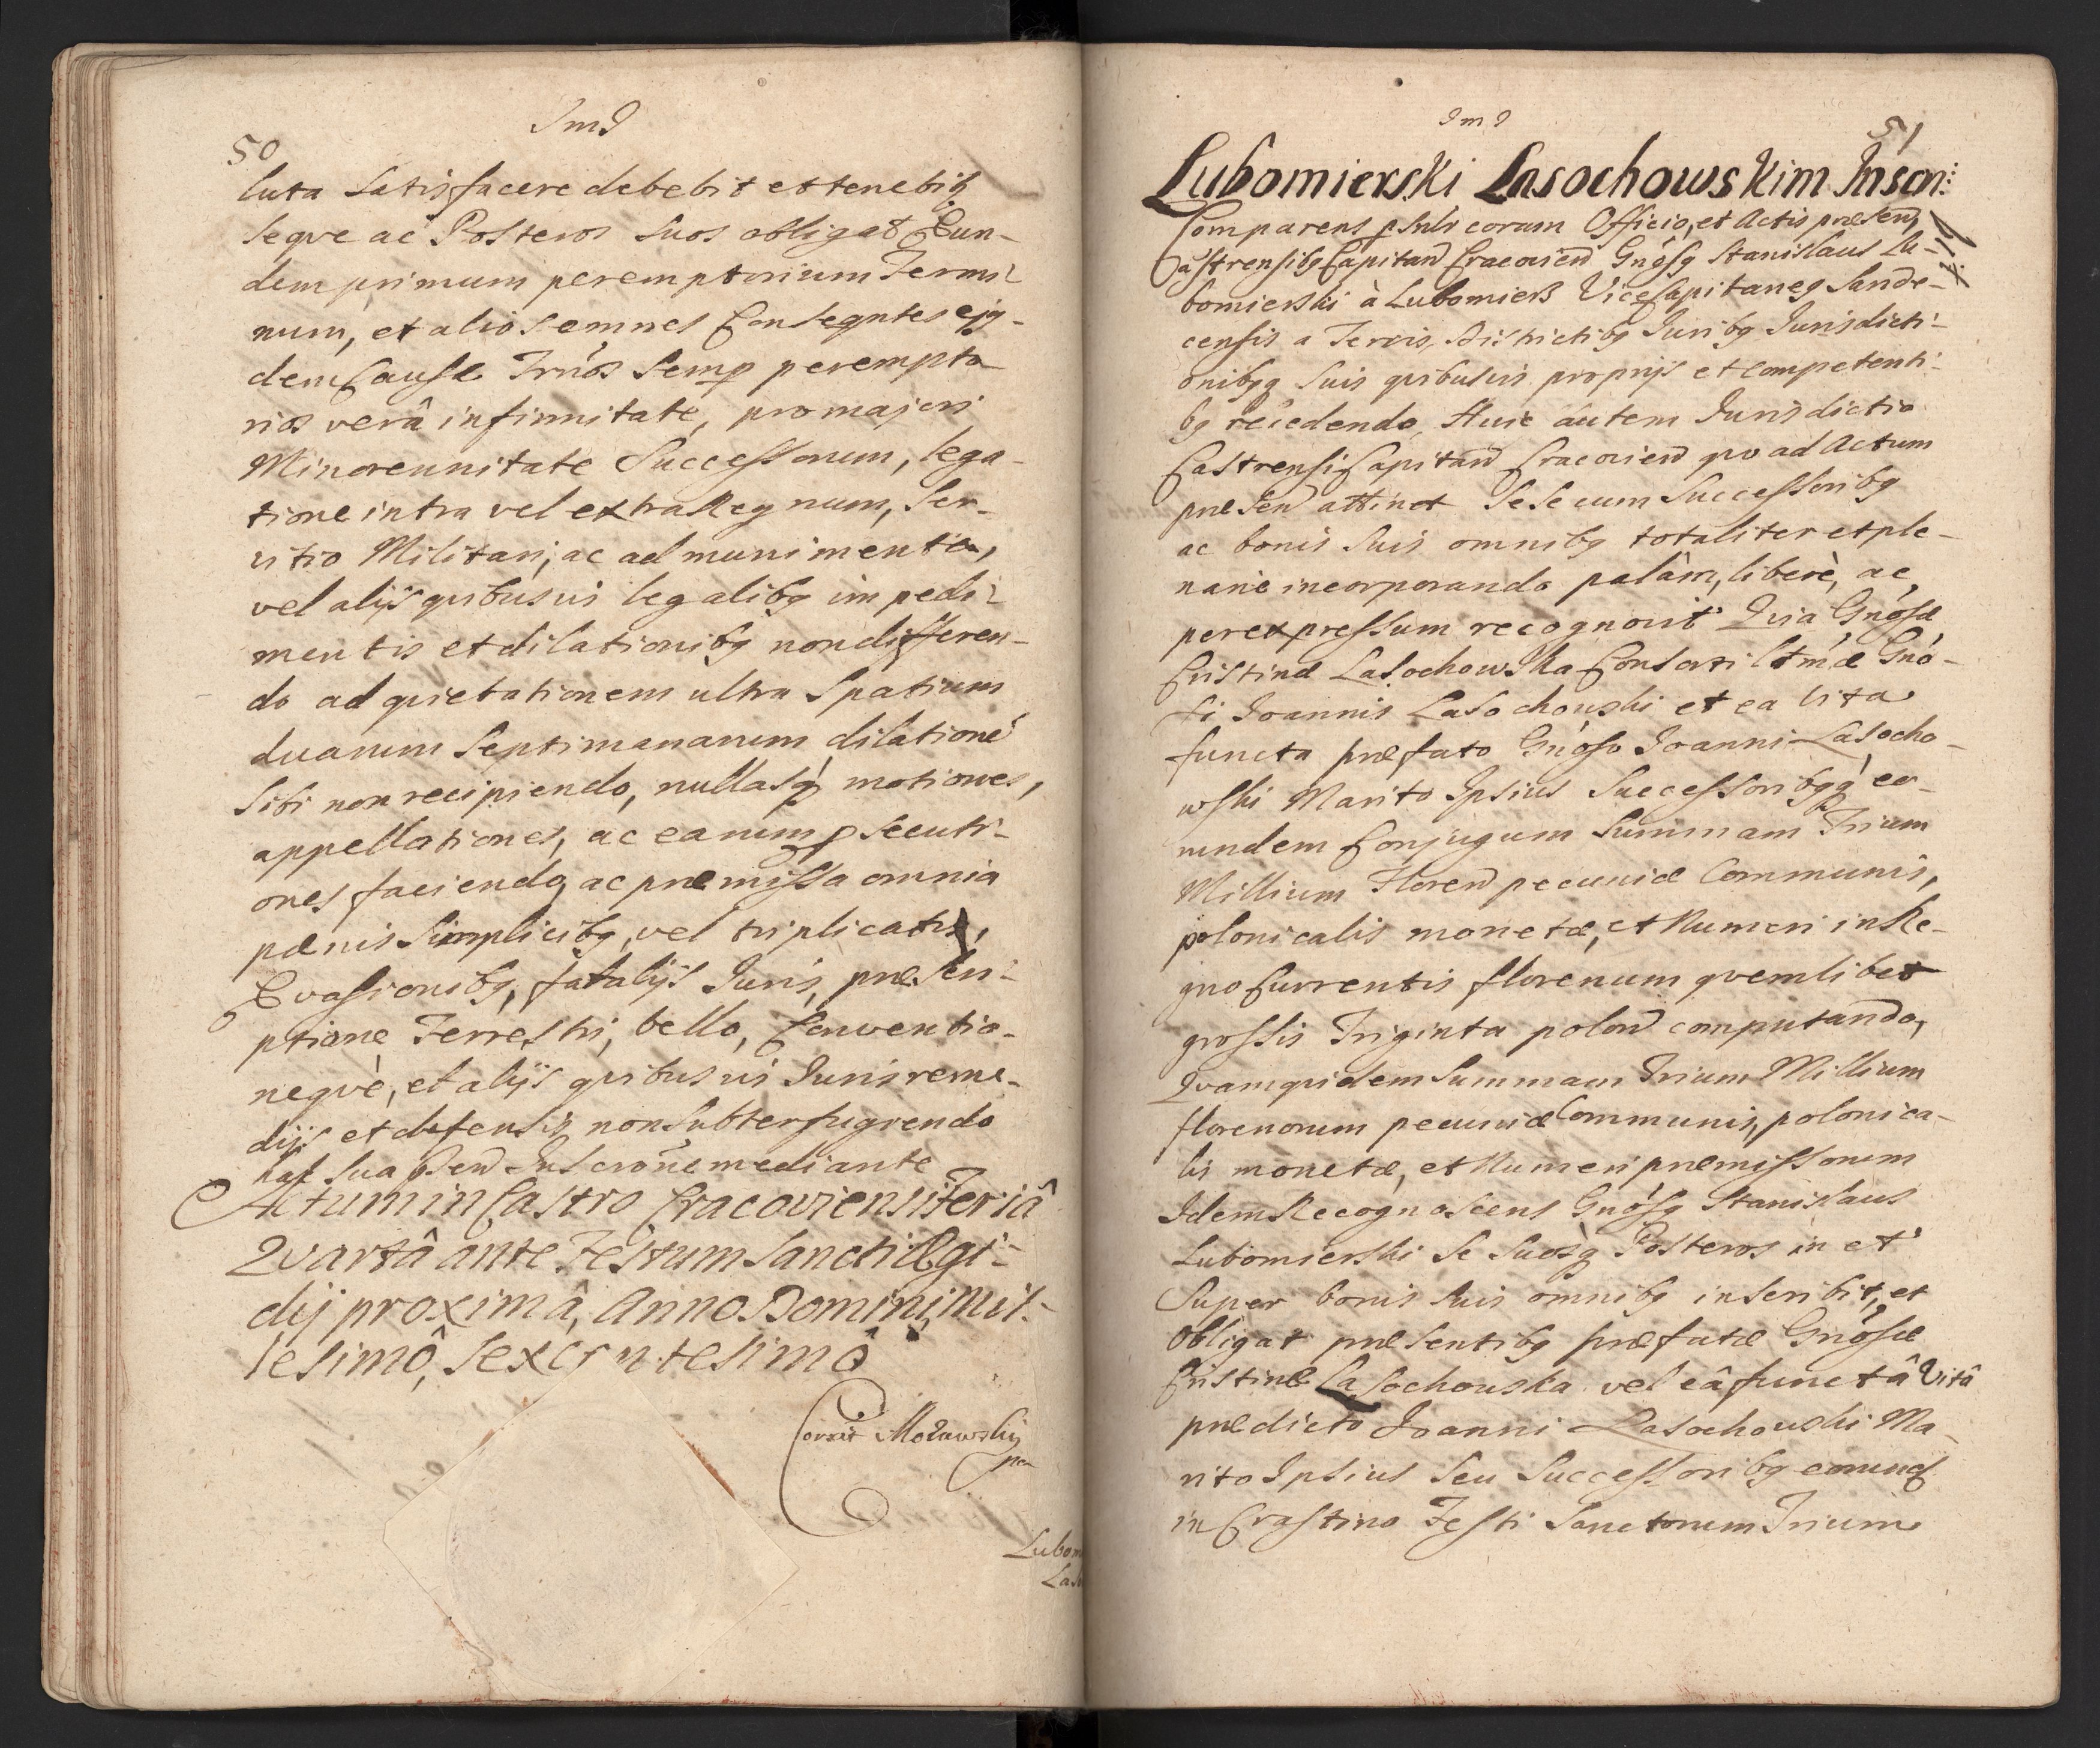 50
JmJ
luta Satisfacere debebit et tenebitq
seqve ac Posteros suos obligat Eun-
dem primum peremptorium Termi-
num, et alios omnes Conseqntes ejq-
dem Causæ Trnos Semp perempto
rios verâ infirmitate, pro majori
Minorennitate Successorum, lega-
tione intra vel extra Regnum, Ser-
vitio Militari, ac ad munimenta,
vel alijs qvibusvis legalibq impedi-
mentis et dilationibq non differen-
do ad qvietationem ultra Spatium
duarum Septimanarum dilationē
Sibi non recipiendo, nullasq motiones,
appellationes, ac earum psecuti-
ones faciendo, ac præmissa omnia
pænis Simplicibq, vel triplicatis,
Evasionibq, fatalijs Juris, præscri-
ptione Terrestri, bello, Conventio-
neqvè, et alijs qvibusvis Juris reme-
dijs et defensis non Subterfugiendo
hac sua psen Inscrōne mediante
Actum in Castro Cracoviensi Feriâ
Qvartâ ante Festum Sancti Ægi-
dij proximâ, Anno Domini, Mil-
lesimô, Sexcentesimô
Corrxit Morawskij
mp
Lubom
Laso
JmJ
51
Lubomierski Lasochowskim Inscri:
Comparens psnlr coram Officio, et Actis præsen,
Castrensibq Capitan Cracovien Gnosq Stanislaus Lu-
bomierski à Lubomierz ViceCapitaneq Sande-
censis a Terris, Districtibq Juribq Jurisdicti-
onibqq suis qvibusvis proprijs et competenti-
bq recedendo, Huic autem Jurisdictio
Castrensi Capitan Cracovien qvo ad Actum
præsen attinet Sese cum Successoribq
ac bonis Suis omnibq totaliter et ple-
narie incorporando palàm, liberè, ac
per expressum recognovit Qvia Gnosæ
Cristinæ Lasochowska Consorti ltmæ Gno-
si Joannis Lasochowski et ea vita
functa præfato Gnoso Joanni Lasocho-
wski Marito Ipsius Successoribqq eo-
rundem Conjugum Summam Trium
Millium Floren pecuniæ Communis,
polonicalis monetæ, et Numeri in Re-
gno Currentis florenum qvemlibet
grossis Triginta polon computando,
Qvam qvidem Summam Trium Millium
florenorum pecuniæ Communis, polonica-
lis monetæ, et Numeri præmissorum
Idem Recognoscens Gnosq Stanislaus
Lubomierski Se Suosq Posteros in et
Super bonis Suis omnibq inscribit, et
Obligat præsentibq præfatæ Gnosæ
Cristinæ Lasochowska vel eâ functâ vitâ
prædicto Joanni Lasochowski Ma-
rito Ipsius seu Successoribq eorund
in Crastino Festi Sanctorum Trium